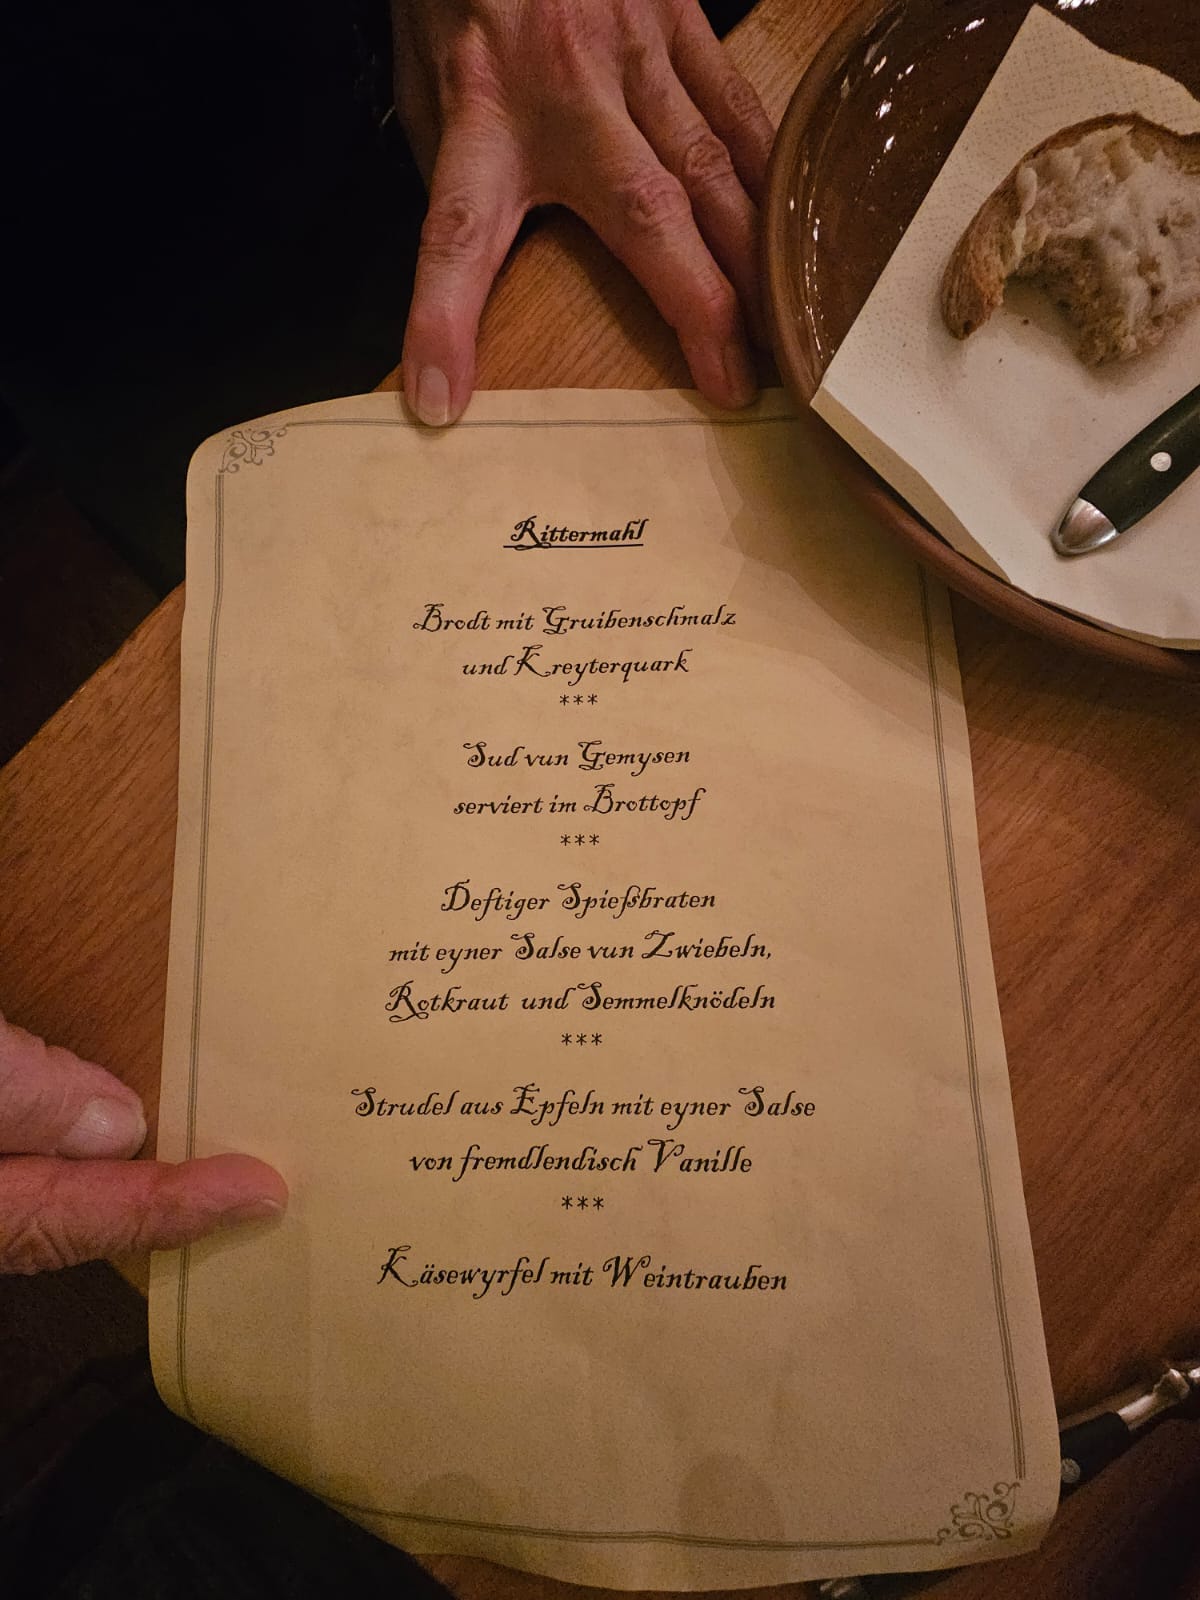 Rittermahl
Brodt mit Gruibenschmalz
und Kreyterquark
***
Sud vun Gemysen
serviert im Brottopf
***
Deftiger Spießbraten
mit eyner Salse vun Zwiebeln,
Rotkraut und Semmelknödeln
***
Strudel aus Epfeln mit eyner Salse
von fremdlendisch Vanille
***
Käsewyrfel mit Weintrauben